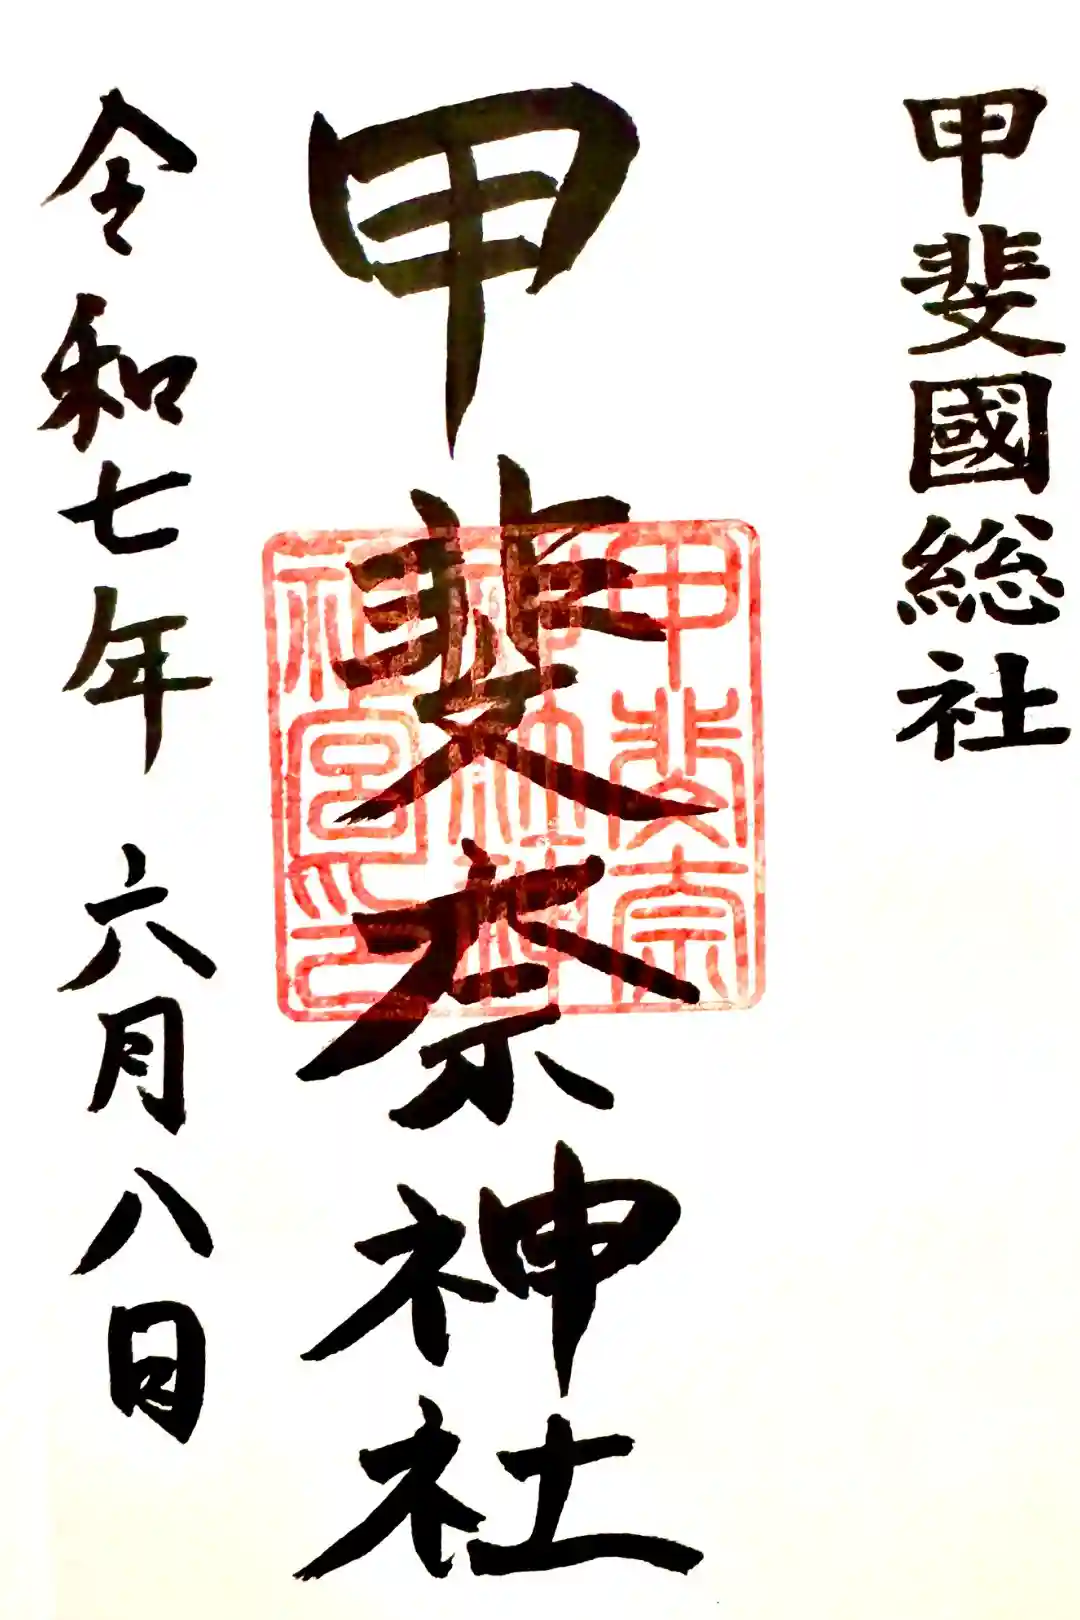 甲斐國総社
甲斐奈神社
甲斐奈
令和七年 六月八日